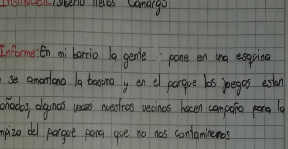 Camargo
Informe: En mi barrio la gente pone en una esquina
se amontona la basura y en el parque los juegos estan
añados, algunas veces nuestros vecinos hacen campaña para la
mpieza del parque para que no nos contaminemos